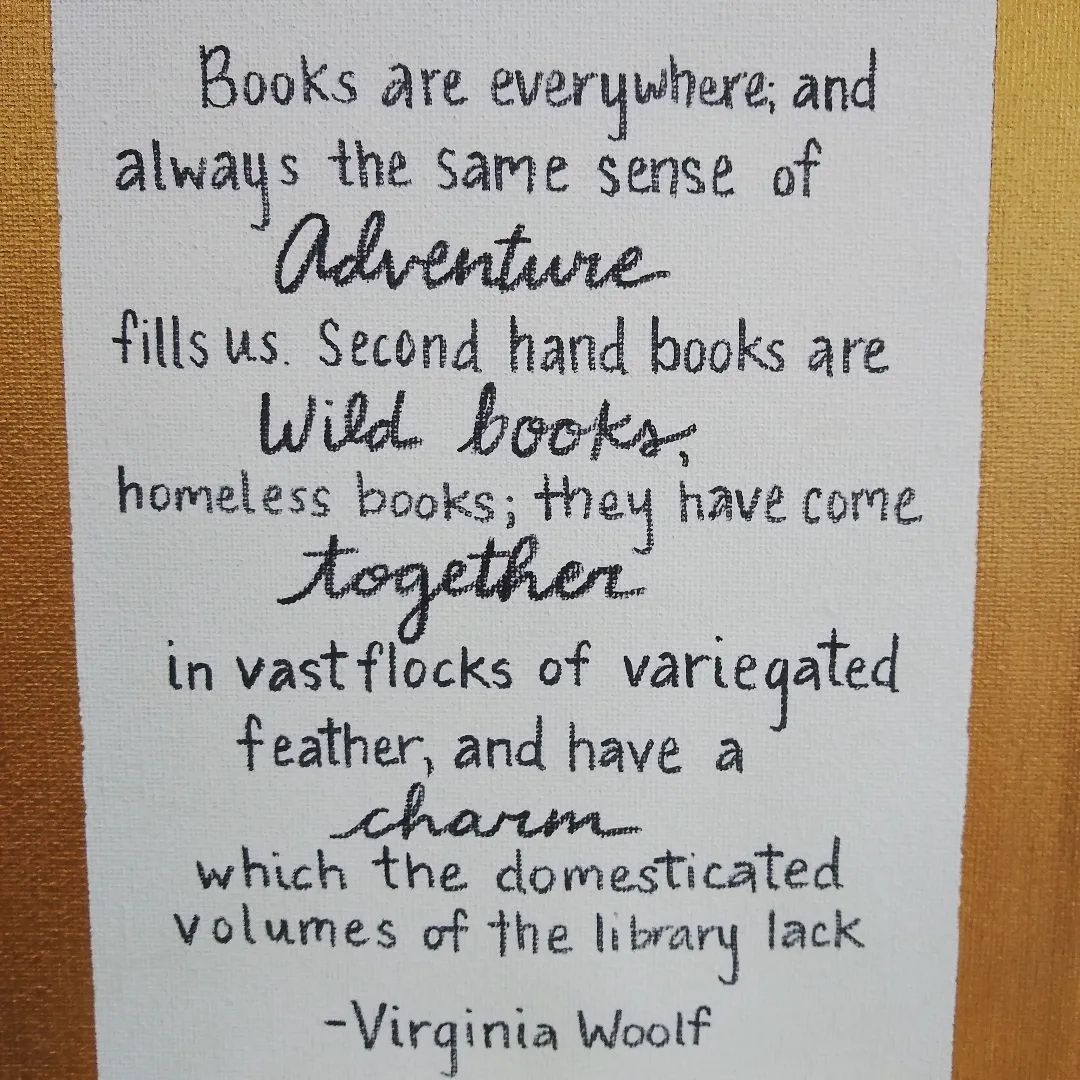 Books are everywhere; and
always the same sense of
Adventure
fills us. Second hand books are
Wild books,
homeless books; they have come
together
in vast flocks of variegated
feather, and have a
charm
which the domesticated
volumes of the library lack
-Virginia Woolf